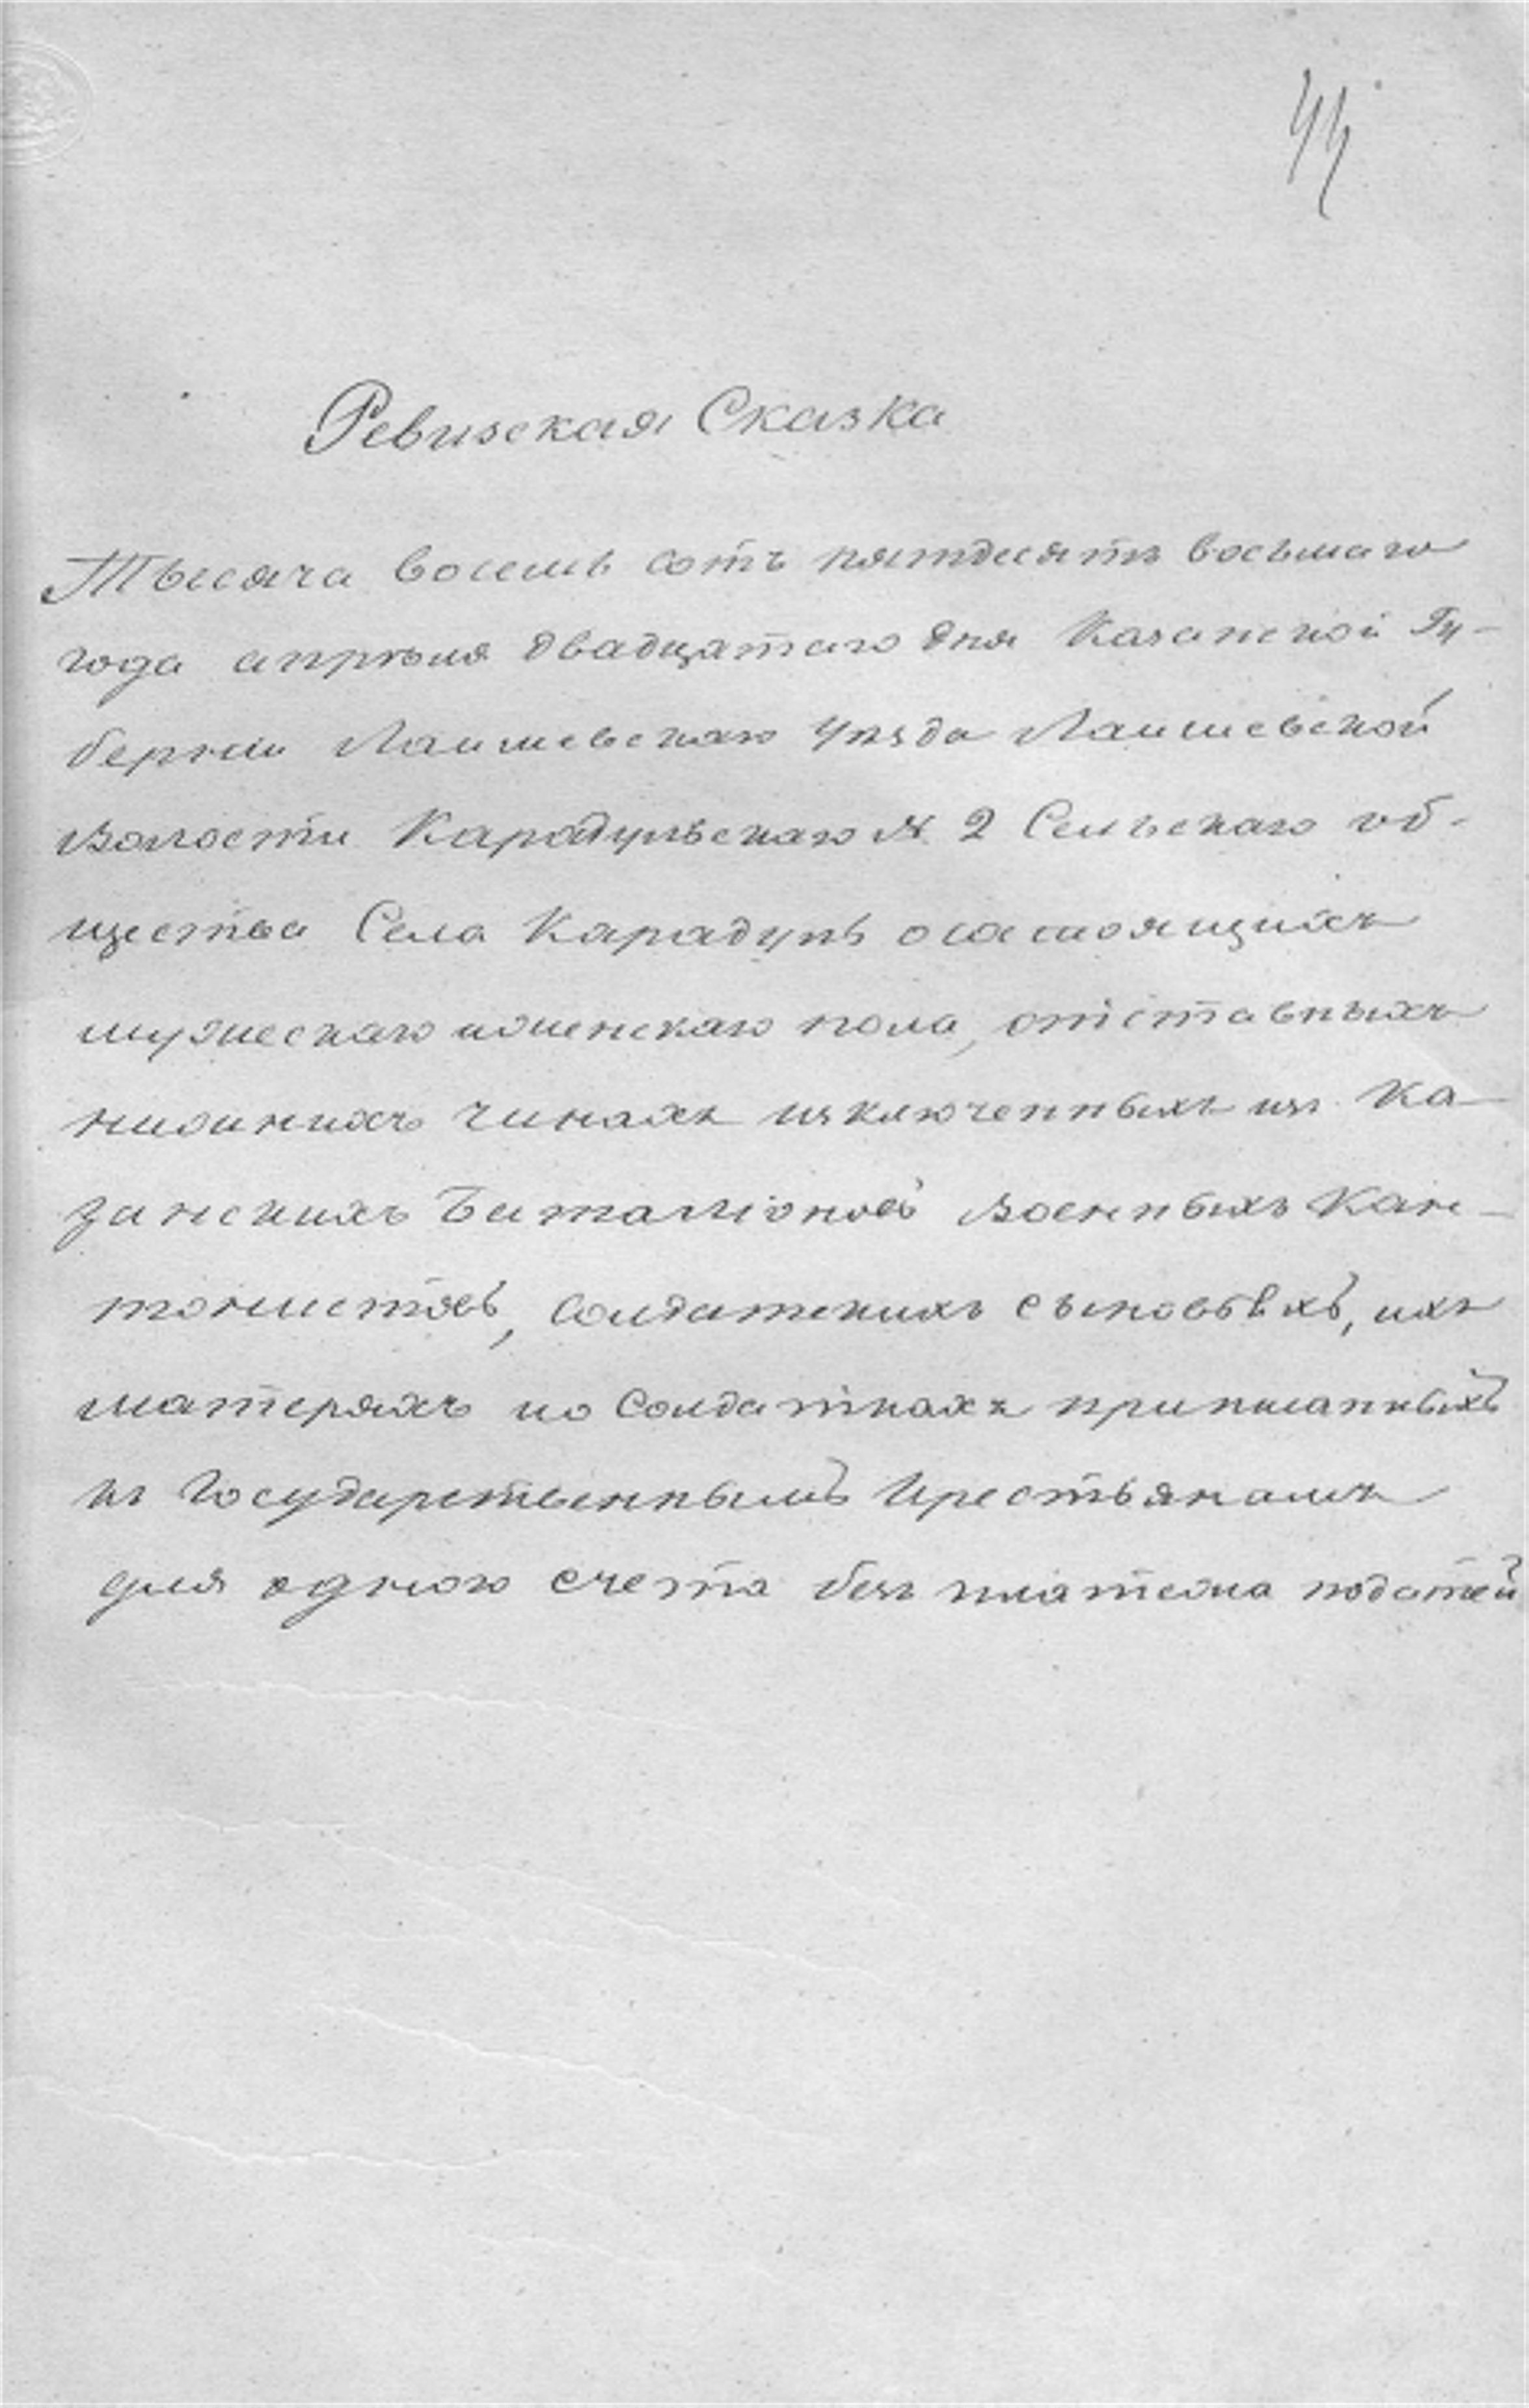 44
Ревизская Сказка
Тысяча восемь сотъ пятдесятъ восьмаго
года апрѣля двадцатаго дня Казанской Гу-
берніи Лаишевскаго Уѣзда Лаишевской
Волости Карадульскаго № 2 Сельскаго об-
щества Села Карадуль о состоящихъ
мужескаго и женскаго пола, отставныхъ
нижнихъ чинахъ изключенныхъ изъ Ка-
занскихъ Баталліоновъ Военныхъ Кан-
тонистовъ, Солдатскихъ сыновьяхъ, ихъ
матеряхъ по Солдаткахъ приписанныхъ
къ Государственнымъ Крестьянамъ
для одного счета безъ платежа податей